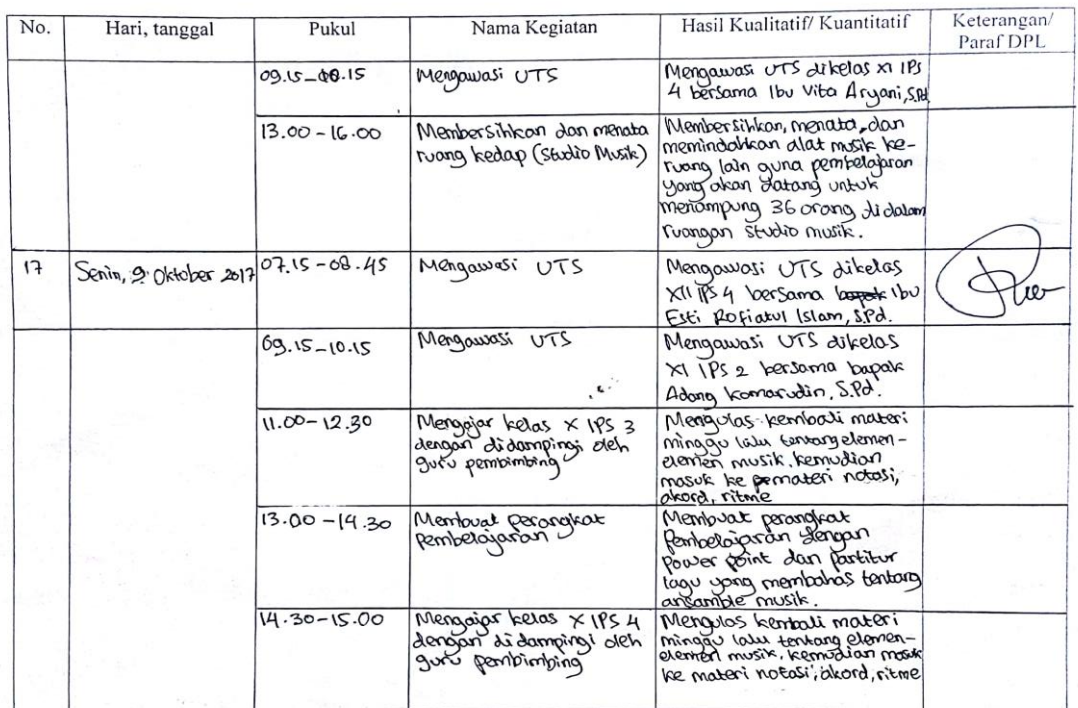 No. Hari, tanggal Pukul Nama Kegiatan Hasil Kualitatif/ Kuantitatif Keterangan/
Paraf DPL
09.15-10.15 Mengawasi UTS Mengawasi UTS dikelas XI IPS
4 bersama Ibu Vita Aryani, S.Pd
13.00 - 16.00 Membersihkan dan menata Membersihkan, menata, dan
ruang kedap (Studio Musik) memindahkan alat musik ke-
ruang lain guna pembelajaran
yang akan datang untuk
menampung 36 orang di dalam
ruangan studio musik.
17 Senin, 9 Oktober 2017 07.15 - 08.45 Mengawasi UTS Mengawasi UTS dikelas
XII IPS 4 bersama bapak Ibu
Esti Rofiatul Islam, S.Pd.
09.15-10.15 Mengawasi UTS Mengawasi UTS dikelas
XI IPS 2 bersama bapak
Adang Komarudin, S.Pd.
11.00 - 12.30 Mengajar kelas X IPS 3 Mengulas kembali materi
dengan didampingi oleh minggu lalu tentang elemen-
guru pembimbing elemen musik. kemudian
masuk ke pemateri notasi,
akord, ritme
13.00 - 14.30 Membuat perangkat Membuat perangkat
pembelajaran pembelajaran dengan
power point dan partitur
lagu yang membahas tentang
ansamble musik.
14.30-15.00 Mengajar kelas X IPS 4 Mengulas kembali materi
dengan didampingi oleh minggu lalu tentang elemen-
guru pembimbing elemen musik. kemudian masuk
ke materi notasi, akord, ritme